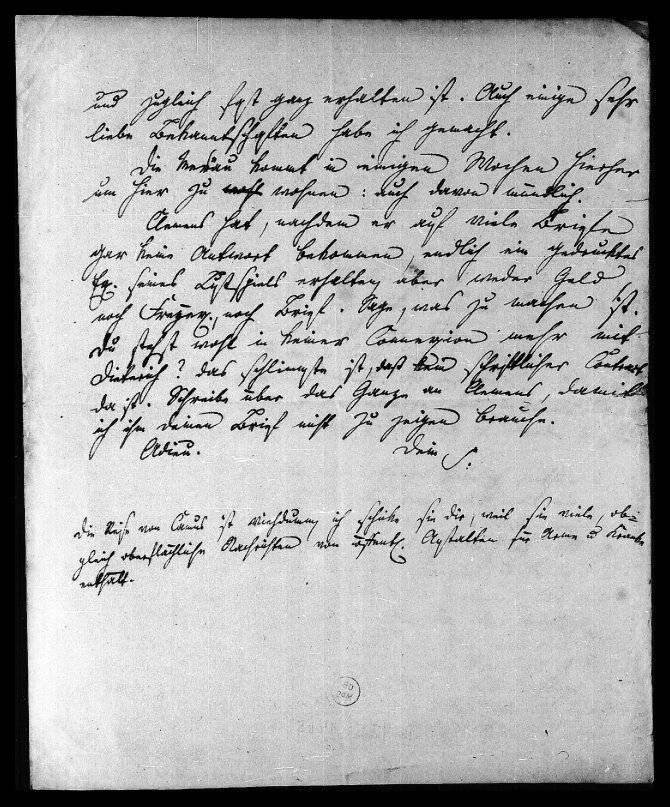 und zugleich fast ganz erhalten ist. Auch einige sehr
liebe Bekanntschaften habe ich gemacht.
Die kommt in einigen Wochen hierher
um hier zu noch wohnen: auch davon mündlich.
Clemens hat, nachdem er auf viele Briefe
gar keine Antwort bekommen, endlich ein gedrucktes
Ex. seines Lustspiels erhalten, aber weder Geld
noch Freyex., noch Brief. Sage, was zu machen ist.
Du stehst wohl in keiner Connexion mehr mit
Dieterich? das schlimmste ist, daß kein schriftlicher Contract
da ist. Schreibe über das Ganze an Clemens, damit
ich ihm deinen Brief nicht zu zeigen brauche.
Adieu. Dein S.
Die Reise von ist viehdumm, ich schicke sie dir, weil sie viele, ob-
gleich oberflächliche Nachrichten von öffentl. Anstalten für Arme u Kranke
enthält.